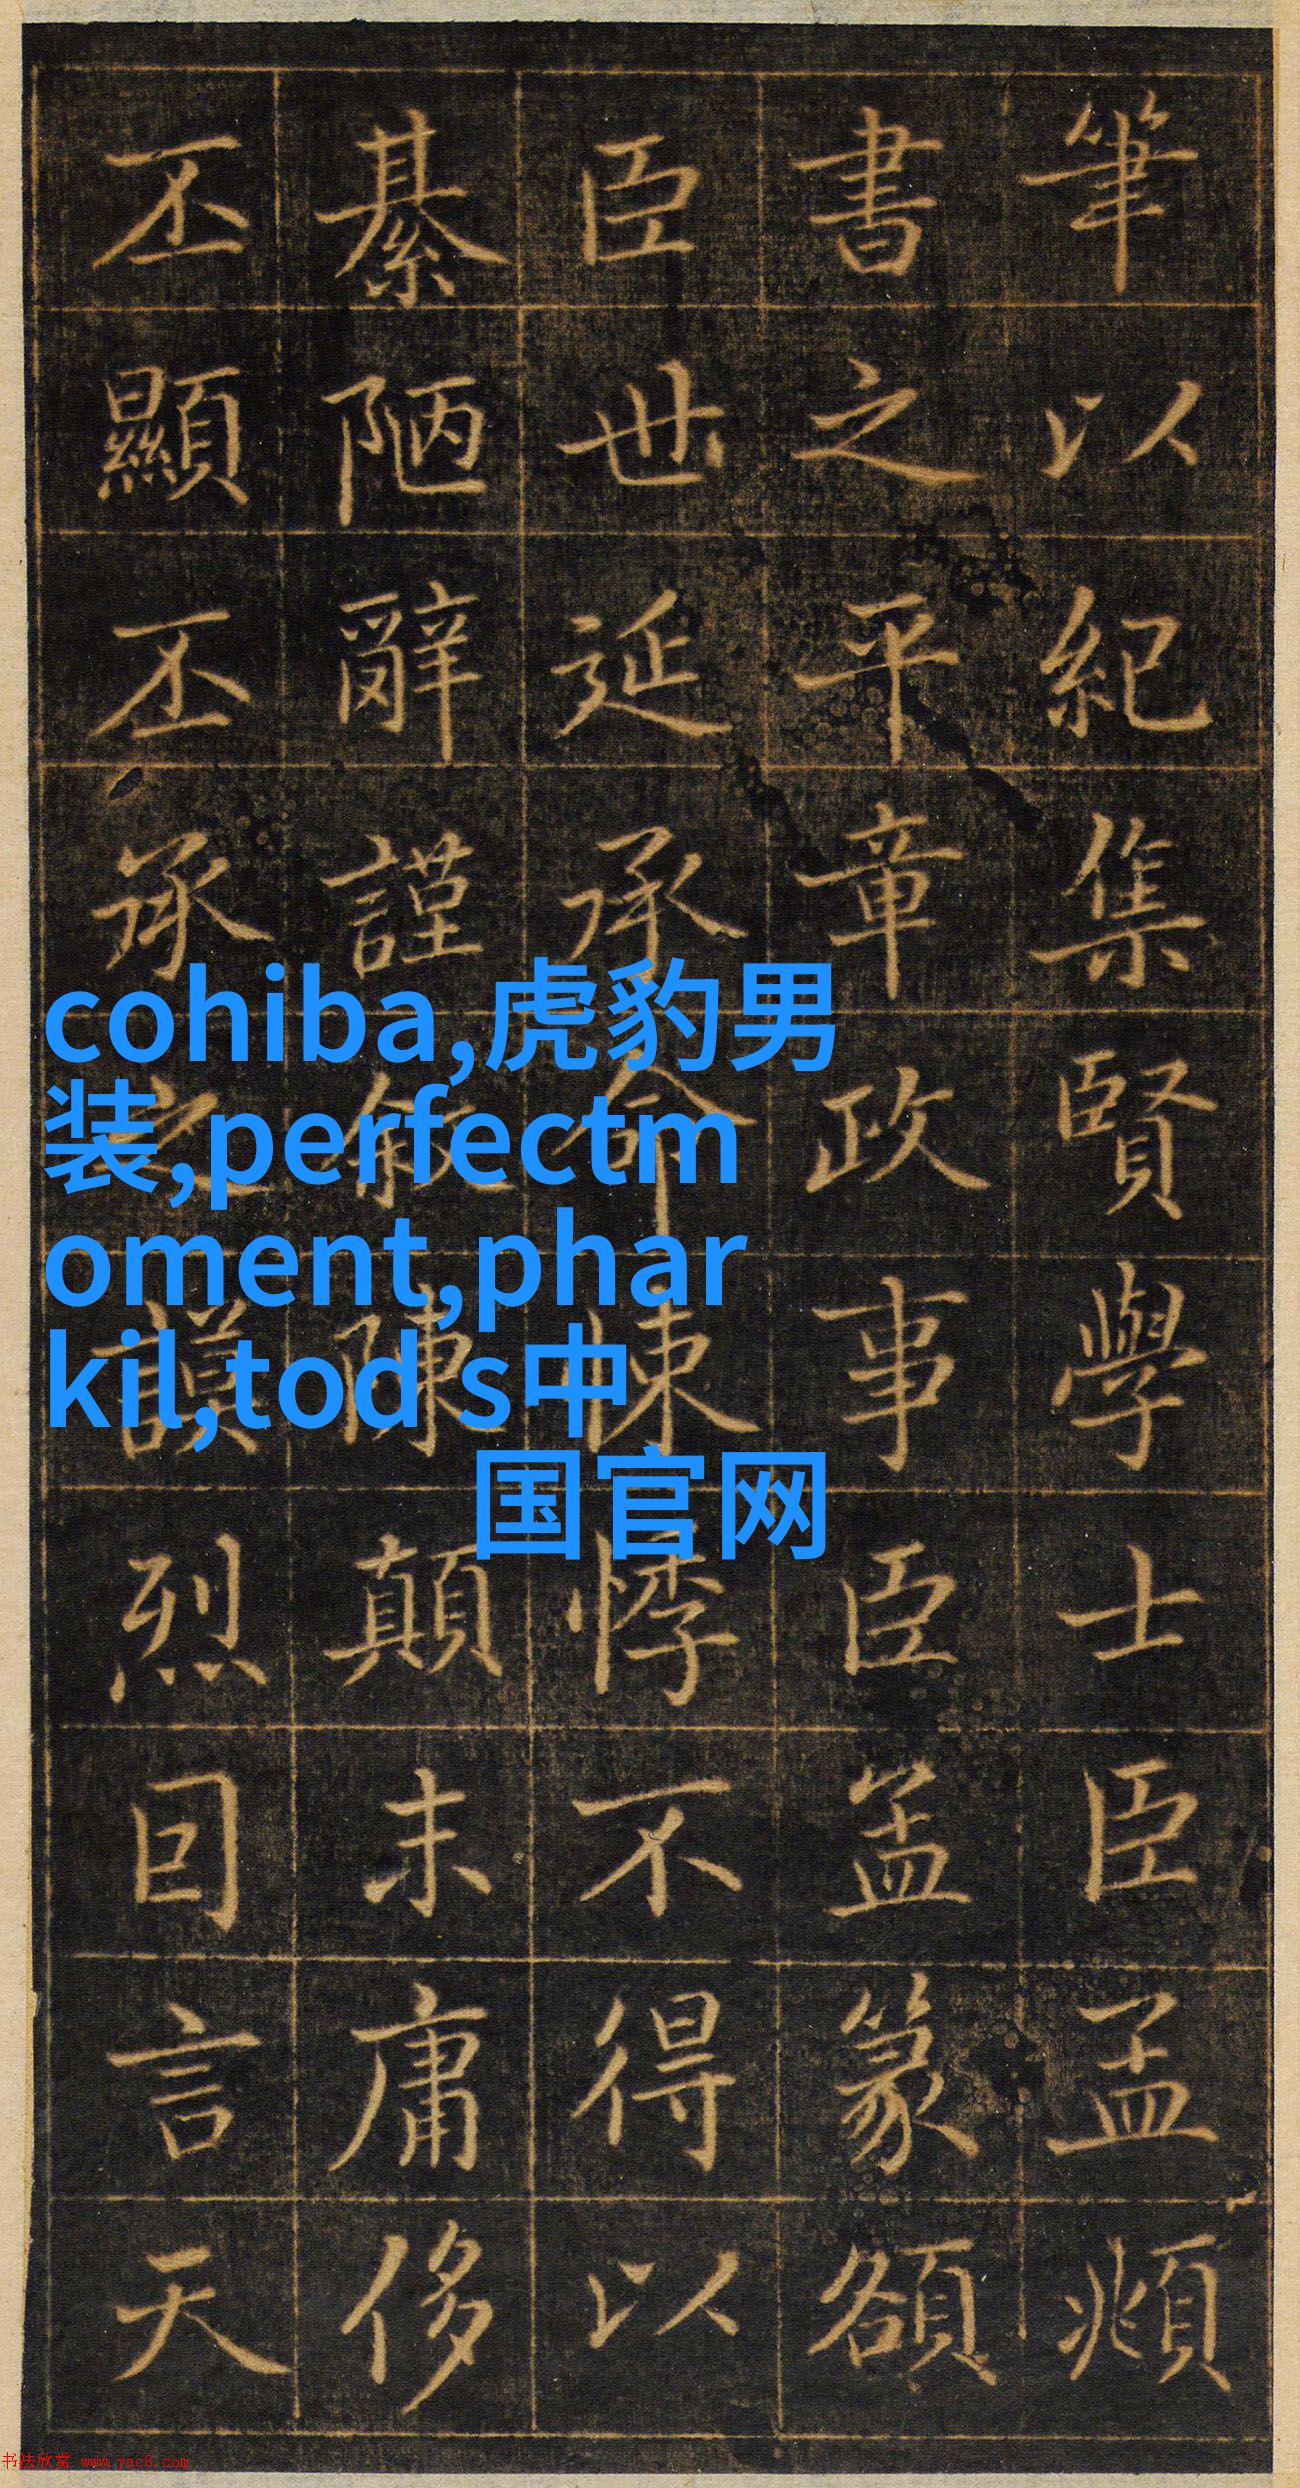 筆以紀集賢學士臣孟頫
書之平章政事臣篆額
臣世延承命悚悸不得以
綦陋辭謹敘陳顛末庸侈
丕顯丕承之謨烈囙言天
cohiba,虎豹男
装,perfectm
oment,phar
kil,tod s中
国官网
书法欣赏 www.yac8.com